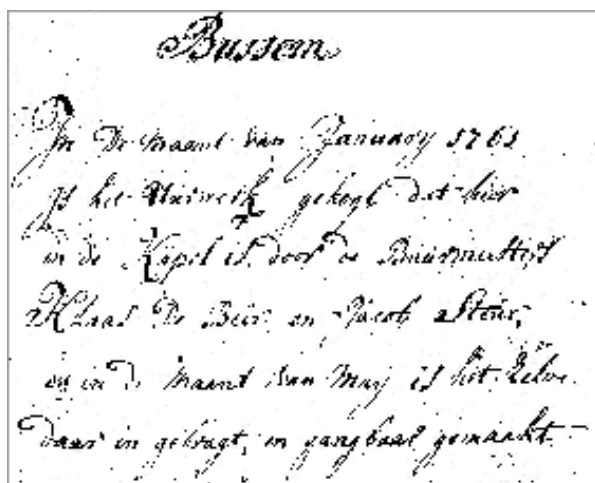 Bussem
In De maant van January 1761
Is het Uurwerk gekogt dat hier
in de Kapel is door de Buurmeesters
Klaas De Beer en Jacob Steur,
en in d maant van Maij is het Zelve
daar in gebragt, en gangbaar gemaakt